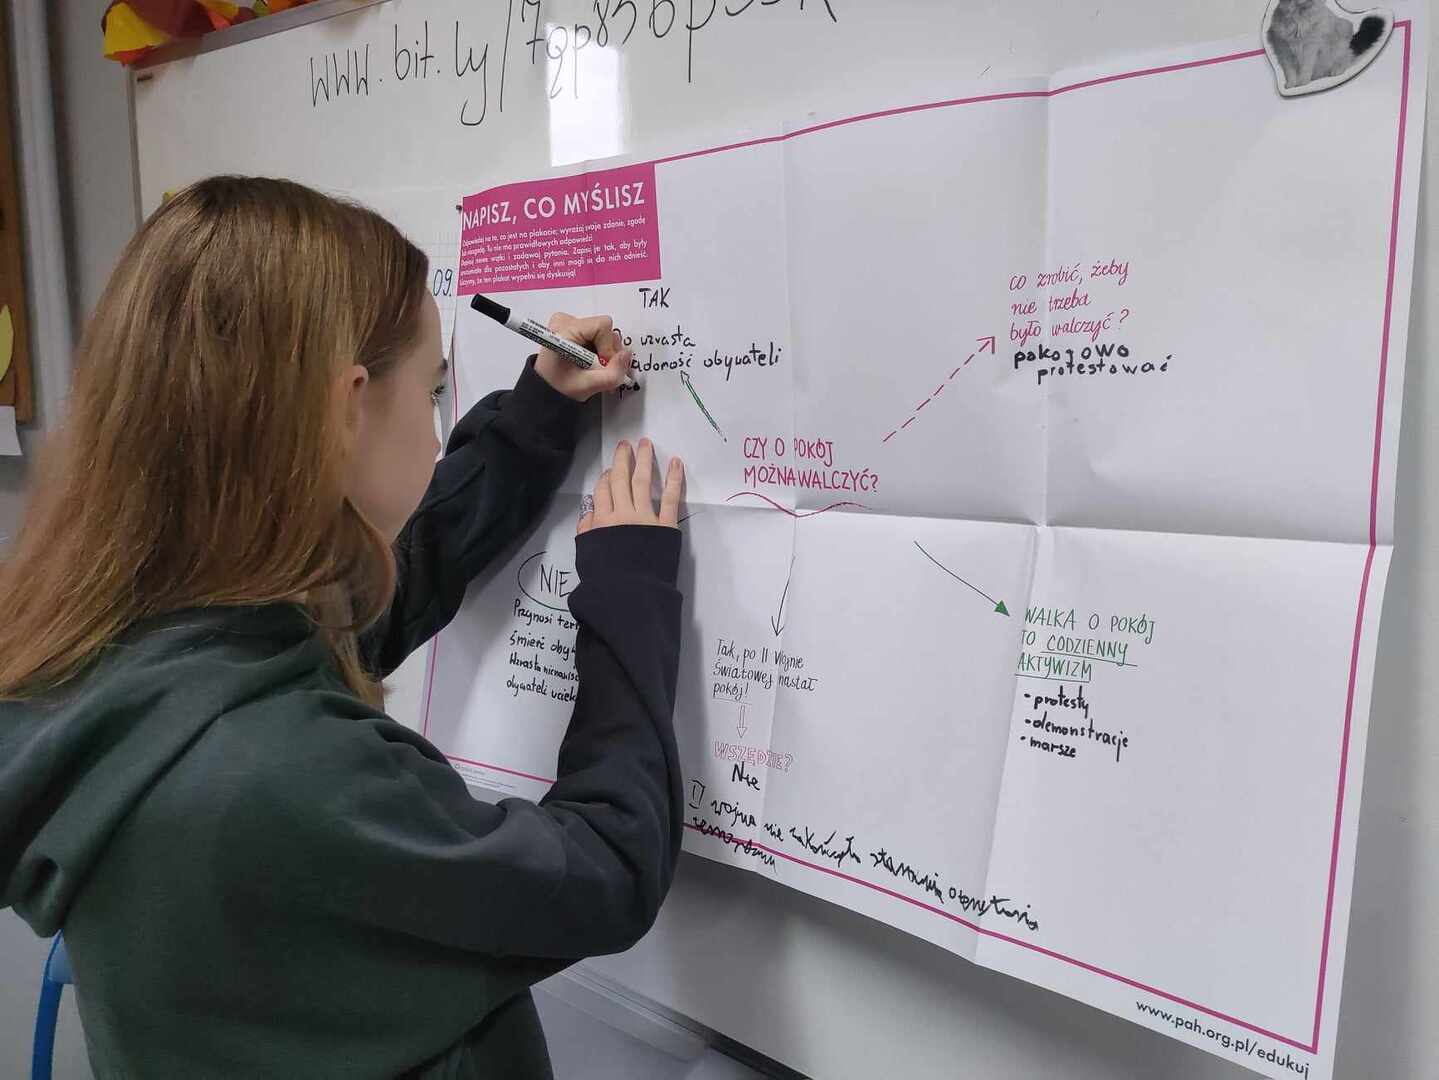 www.bit.ly/
NAPISZ, CO MYŚLISZ
Odpowiedz na to, co jest na plakacie; wyraź swoje zdanie, zgodę
lub niezgodę. Tu nie ma prawidłowych odpowiedzi!
Dopisuj nowe wątki i zadawaj pytania. Zapisuj je tak, aby były
zrozumiałe dla pozostałych i aby inni mogli się do nich odnieść.
Liczymy, że ten plakat wypełni się dyskusją!
09.
TAK
wzrasta
iadomość obywateli
CO ZROBIĆ, ŻEBY
nie trzeba
było walczyć?
pokojowo
protestować
CZY O POKÓJ
MOŻNA WALCZYĆ?
NIE
Przynosi
śmierć
Wzrasta
obywateli
Tak, po II Wojnie
Światowej nastał
pokój!
WSZĘDZIE?
Nie
II wojna nie zakończyła
WALKA O POKÓJ
TO CODZIENNY
AKTYWIZM
- protesty
- demonstracje
- marsze
www.pah.org.pl/edukuj